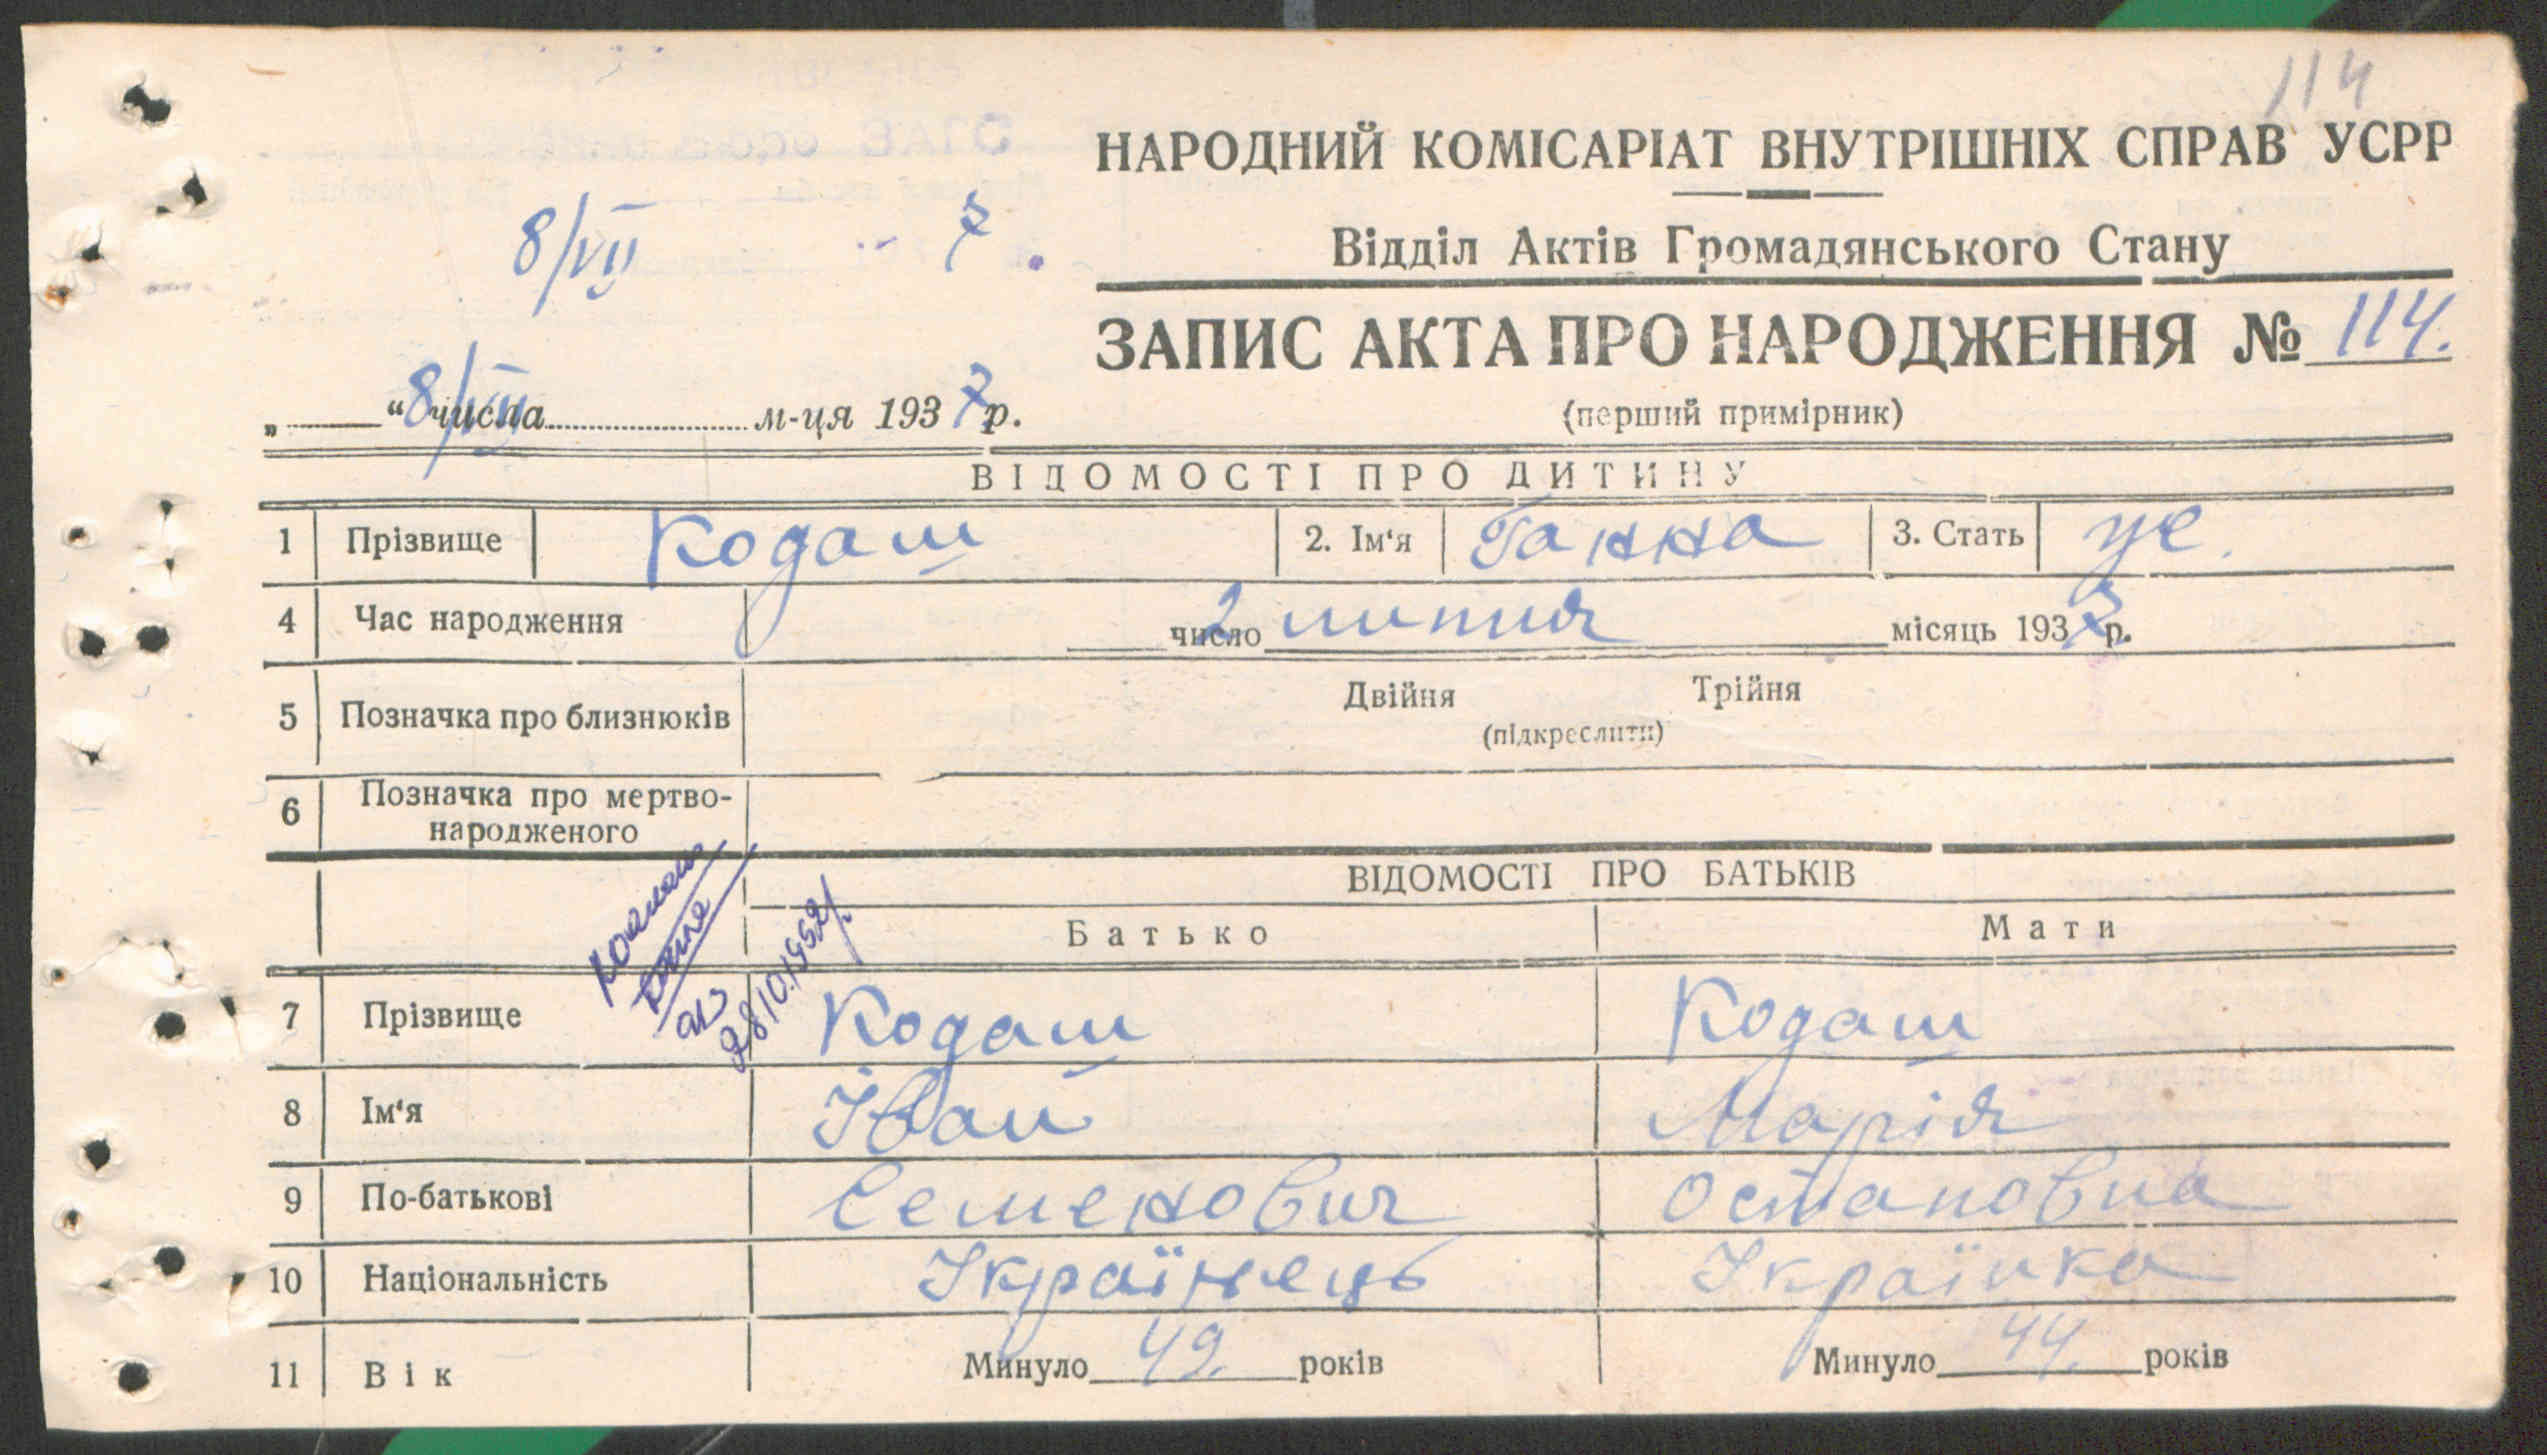 114
НАРОДНИЙ КОМІСАРІАТ ВНУТРІШНІХ СПРАВ УСРР
Відділ Актів Громадянського Стану
8/VII 7.
ЗАПИС АКТА ПРО НАРОДЖЕННЯ № 114.
(перший примірник)
„ “ 8/VII числа м-ця 1937 р.
ВІДОМОСТІ ПРО ДИТИНУ
1 Прізвище Кодаш 2. Ім‘я Ганна 3. Стать ж.
4 Час народження 2 число липня місяць 1937 р.
5 Позначка про близнюків Двійня Трійня
(підкреслити)
6 Позначка про мертво-
народженого
ВІДОМОСТІ ПРО БАТЬКІВ
Батько Мати
28.10.1952г.
7 Прізвище Кодаш Кодаш
8 Ім‘я Іван Марія
9 По-батькові Семенович Остаповна
10 Національність Українець Українка
11 Вік Минуло 49. років Минуло 44. років